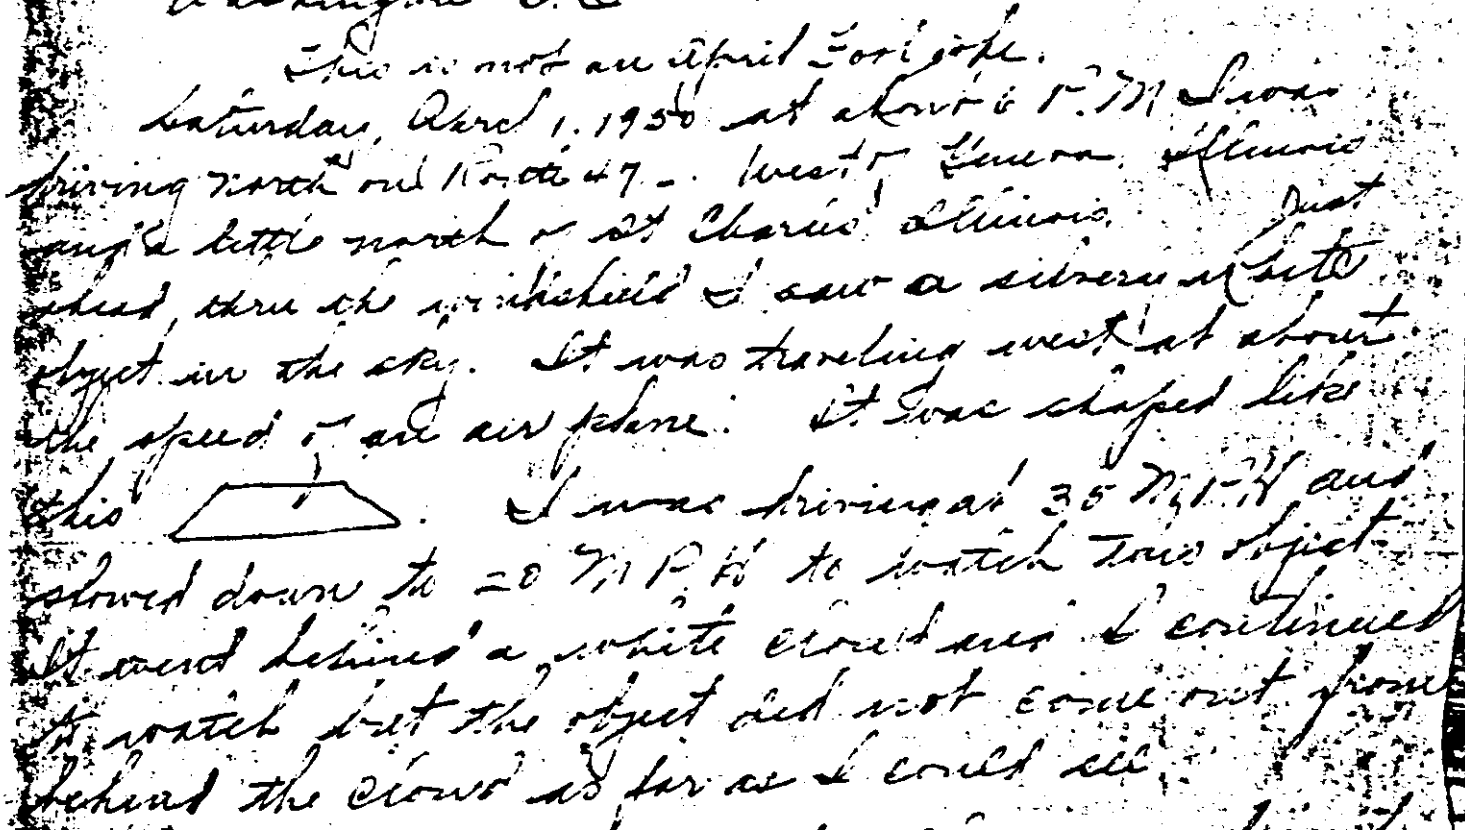 Washington D.C
This is not an April Fool joke.
Saturday, April 1, 1950 at about 6 P.M I was
driving north on Route 47 - West of Geneva, Illinois
and a little north of St Charles Illinois. Just
ahead, thru the windshield I saw a silvery white
object in the sky. It was traveling west at about
the speed of an air plane. It was shaped like
this . I was driving at 35 M.P.H and
slowed down to 20 M P H to watch this object
It went behind a white cloud and I continued
to watch but the object did not come out from
behind the cloud as far as I could see.